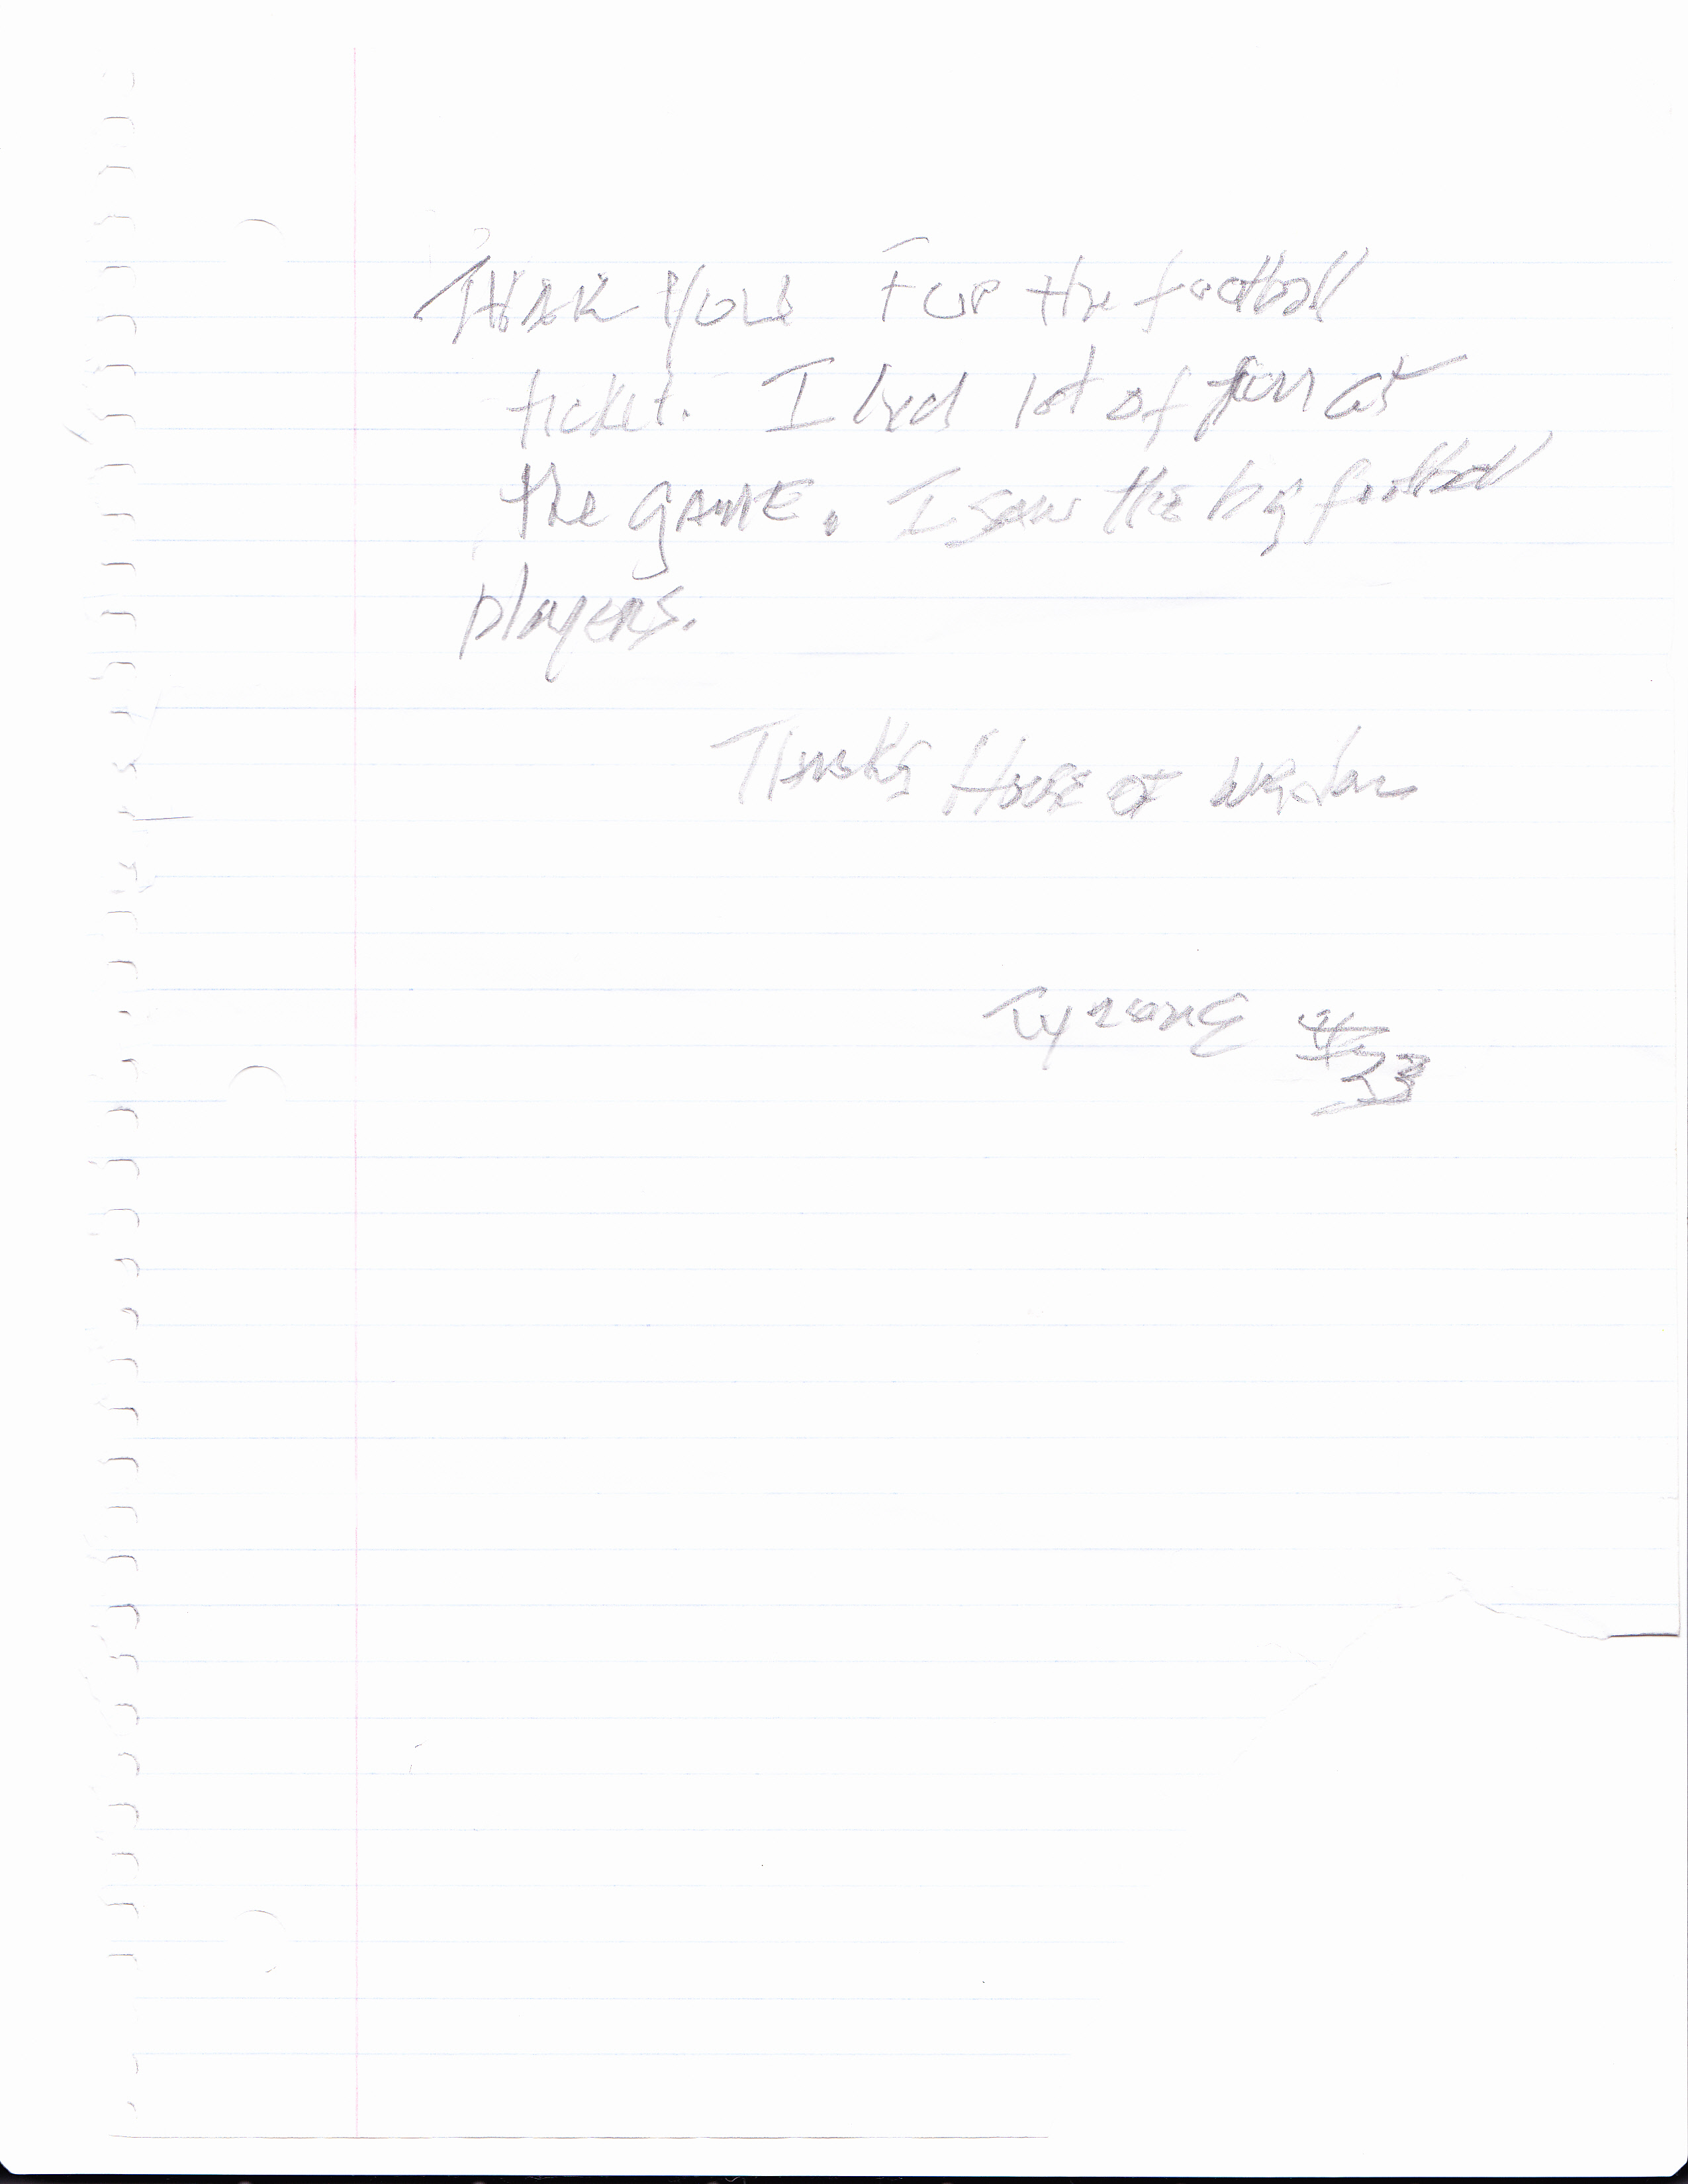 THANK YOU For the football
ticket. I had lot of fun at
the GAME. I saw the big football
players.
Thanks House of
Tyrone #
23